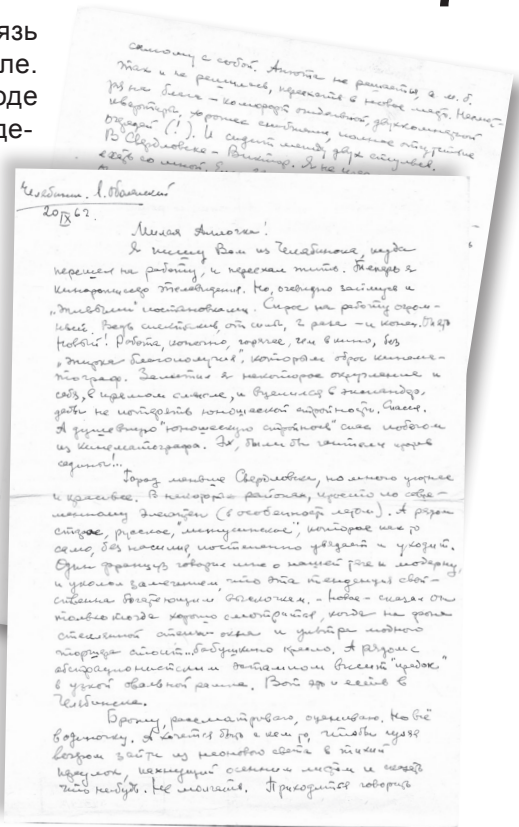 язь
ле.
оде
де-
самому с собой. Анюта не решается, а м.б.
так и не решилась, переехать в новое место. Несмот-
ря на блага – комфорт отдельной, двухкомнатной
квартиры, хорошее снабжение, полное отсутствие
очередей (!). И сидит между двух стульев.
В Свердловске – Виктор. Я не
ехать со мной.
Челябинск. Л. Оболенский
20/IX 62.
Милая Аллочка!
Я пишу Вам из Челябинска, куда
перешел на работу, и переехал жить. Теперь я
кинорежиссер телевидения. Но, очевидно займусь и
"живыми" постановками. Спрос на работу огром-
ный. Ведь спектакль, от силы, 2 раза – и конец. Опять
Новый! Работа, конечно, горячее, чем в кино, без
"жирка благополучия", которым оброс кинема-
тограф. Заметил я некоторое округление и
себя, в прямом смысле, и вцепился в эспандер,
дабы не потерять юношеской стройности. Спасся.
А душевную "юношескую стройность" спас побегом
из кинематографа. Эх, были бы
единый!..
Город меньше Свердловска, но много уютнее
и красивее. В некоторых районах, просто по совре-
менному элегантен (в особенности летом). А рядом
старое, русское, которое как-то
само, без насилия, постепенно увядает и уходит.
Один француз говорил мне о нашей тяге к модерну,
и уколол замечанием, что эта тенденция свой-
ственна богатеющим выскочкам. – Новое – сказал он
только тогда хорошо смотрится, когда на фоне
стеклянной стены-окна и ультра модного
торшера стоит... бабушкино кресло. А рядом с
абстракционистским эстампом висит "предок"
в узкой овальной рамке. Вот это и есть в
Челябинске.
Брожу, рассматриваю, оцениваю. Но всё
в одиночку. А хочется быть с кем-то, чтобы
вдвоем зайти из неонового света в тихий
переулок, пахнущий осенним листом и сказать
что нибудь. Не молчать. Приходится говорить